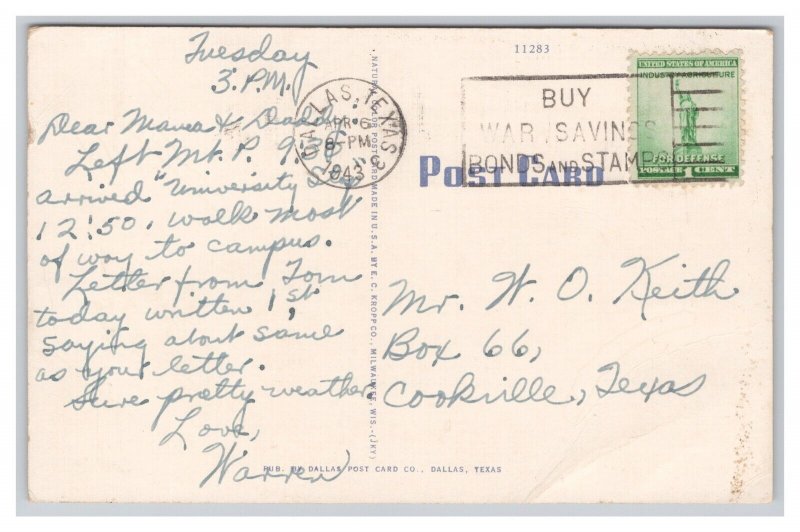 Tuesday
3 P.M.
Dear Mama & Dad,
Left Mt. P. 9:35
arrived "University
12:50, walk most
of way to campus.
Letter from Tom
today written 1st,
saying about same
as your letter.
Sure pretty weather.
Love,
Warren
DALLAS, TEXAS
APR 6
8-PM
1943
NATURAL COLOR POST CARD MADE IN U.S.A. BY E. C. KROPP CO., MILWAUKEE, WIS.-(JKY)
11283
BUY
WAR SAVINGS
BONDS AND STAMPS
UNITED STATES OF AMERICA
INDUSTRY AGRICULTURE
FOR DEFENSE
POSTAGE 1 CENT
POST CARD
Mr. W. O. Keith
Box 66,
Cookville, Texas
PUB. BY DALLAS POST CARD CO., DALLAS, TEXAS